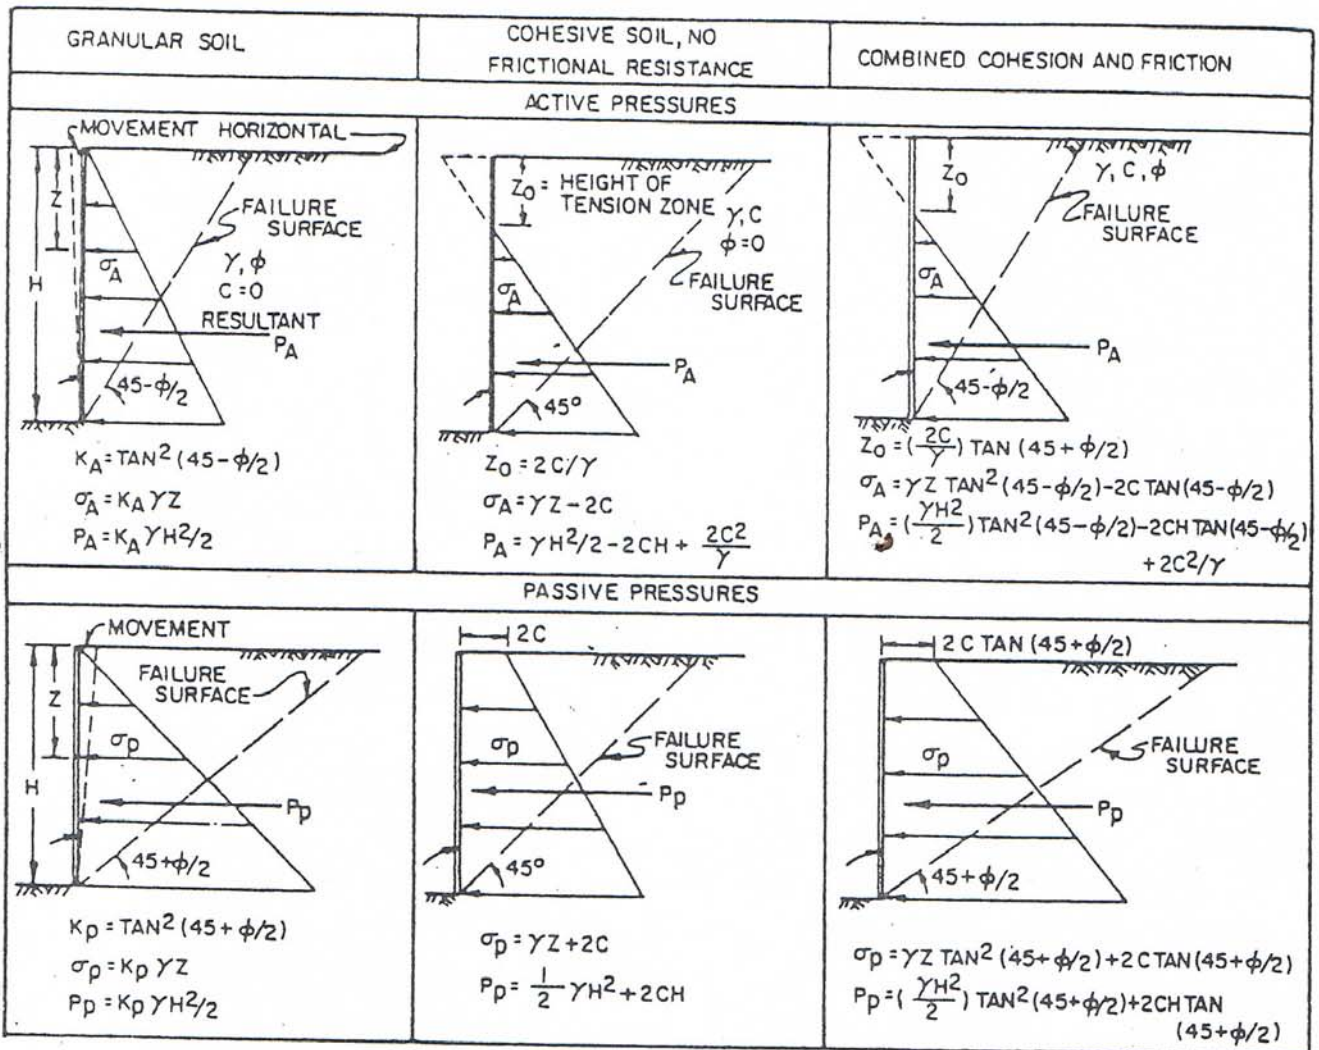 GRANULAR SOIL
COHESIVE SOIL, NO
FRICTIONAL RESISTANCE
COMBINED COHESION AND FRICTION
ACTIVE PRESSURES
MOVEMENT HORIZONTAL
Z
H
σA
FAILURE
SURFACE
γ, ϕ
C=0
RESULTANT
PA
45-ϕ/2
KA=TAN²(45-ϕ/2)
σA=KA γZ
PA=KA γH²/2
Z0= HEIGHT OF
TENSION ZONE
γ, C
ϕ=0
FAILURE
SURFACE
σA
PA
45°
Z0=2C/γ
σA=γZ-2C
PA=γH²/2-2CH+ 2C²/γ
Z0
γ, C, ϕ
FAILURE
SURFACE
σA
PA
45-ϕ/2
Z0=(2C/γ) TAN (45+ϕ/2)
σA=γZ TAN²(45-ϕ/2)-2C TAN(45-ϕ/2)
PA=(γH²/2)TAN²(45-ϕ/2)-2CH TAN(45-ϕ/2)
+2C²/γ
PASSIVE PRESSURES
MOVEMENT
FAILURE
SURFACE
Z
H
σp
Pp
45+ϕ/2
Kp=TAN²(45+ϕ/2)
σp=Kp γZ
Pp=Kp γH²/2
2C
σp
FAILURE
SURFACE
Pp
45°
σp=γZ+2C
Pp=1/2 γH²+2CH
2C TAN (45+ϕ/2)
σp
FAILURE
SURFACE
Pp
45+ϕ/2
σp=γZ TAN²(45+ϕ/2)+2C TAN(45+ϕ/2)
Pp=(γH²/2)TAN²(45+ϕ/2)+2CH TAN
(45+ϕ/2)